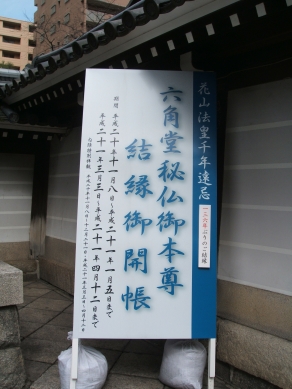 花山法皇千年遠忌
一二六年ぶりのご結縁
六角堂秘仏御本尊
結縁御開帳
期間
平成二十年十一月八日~平成二十一年一月五日まで
平成二十一年三月三日~平成二十一年四月十二日まで